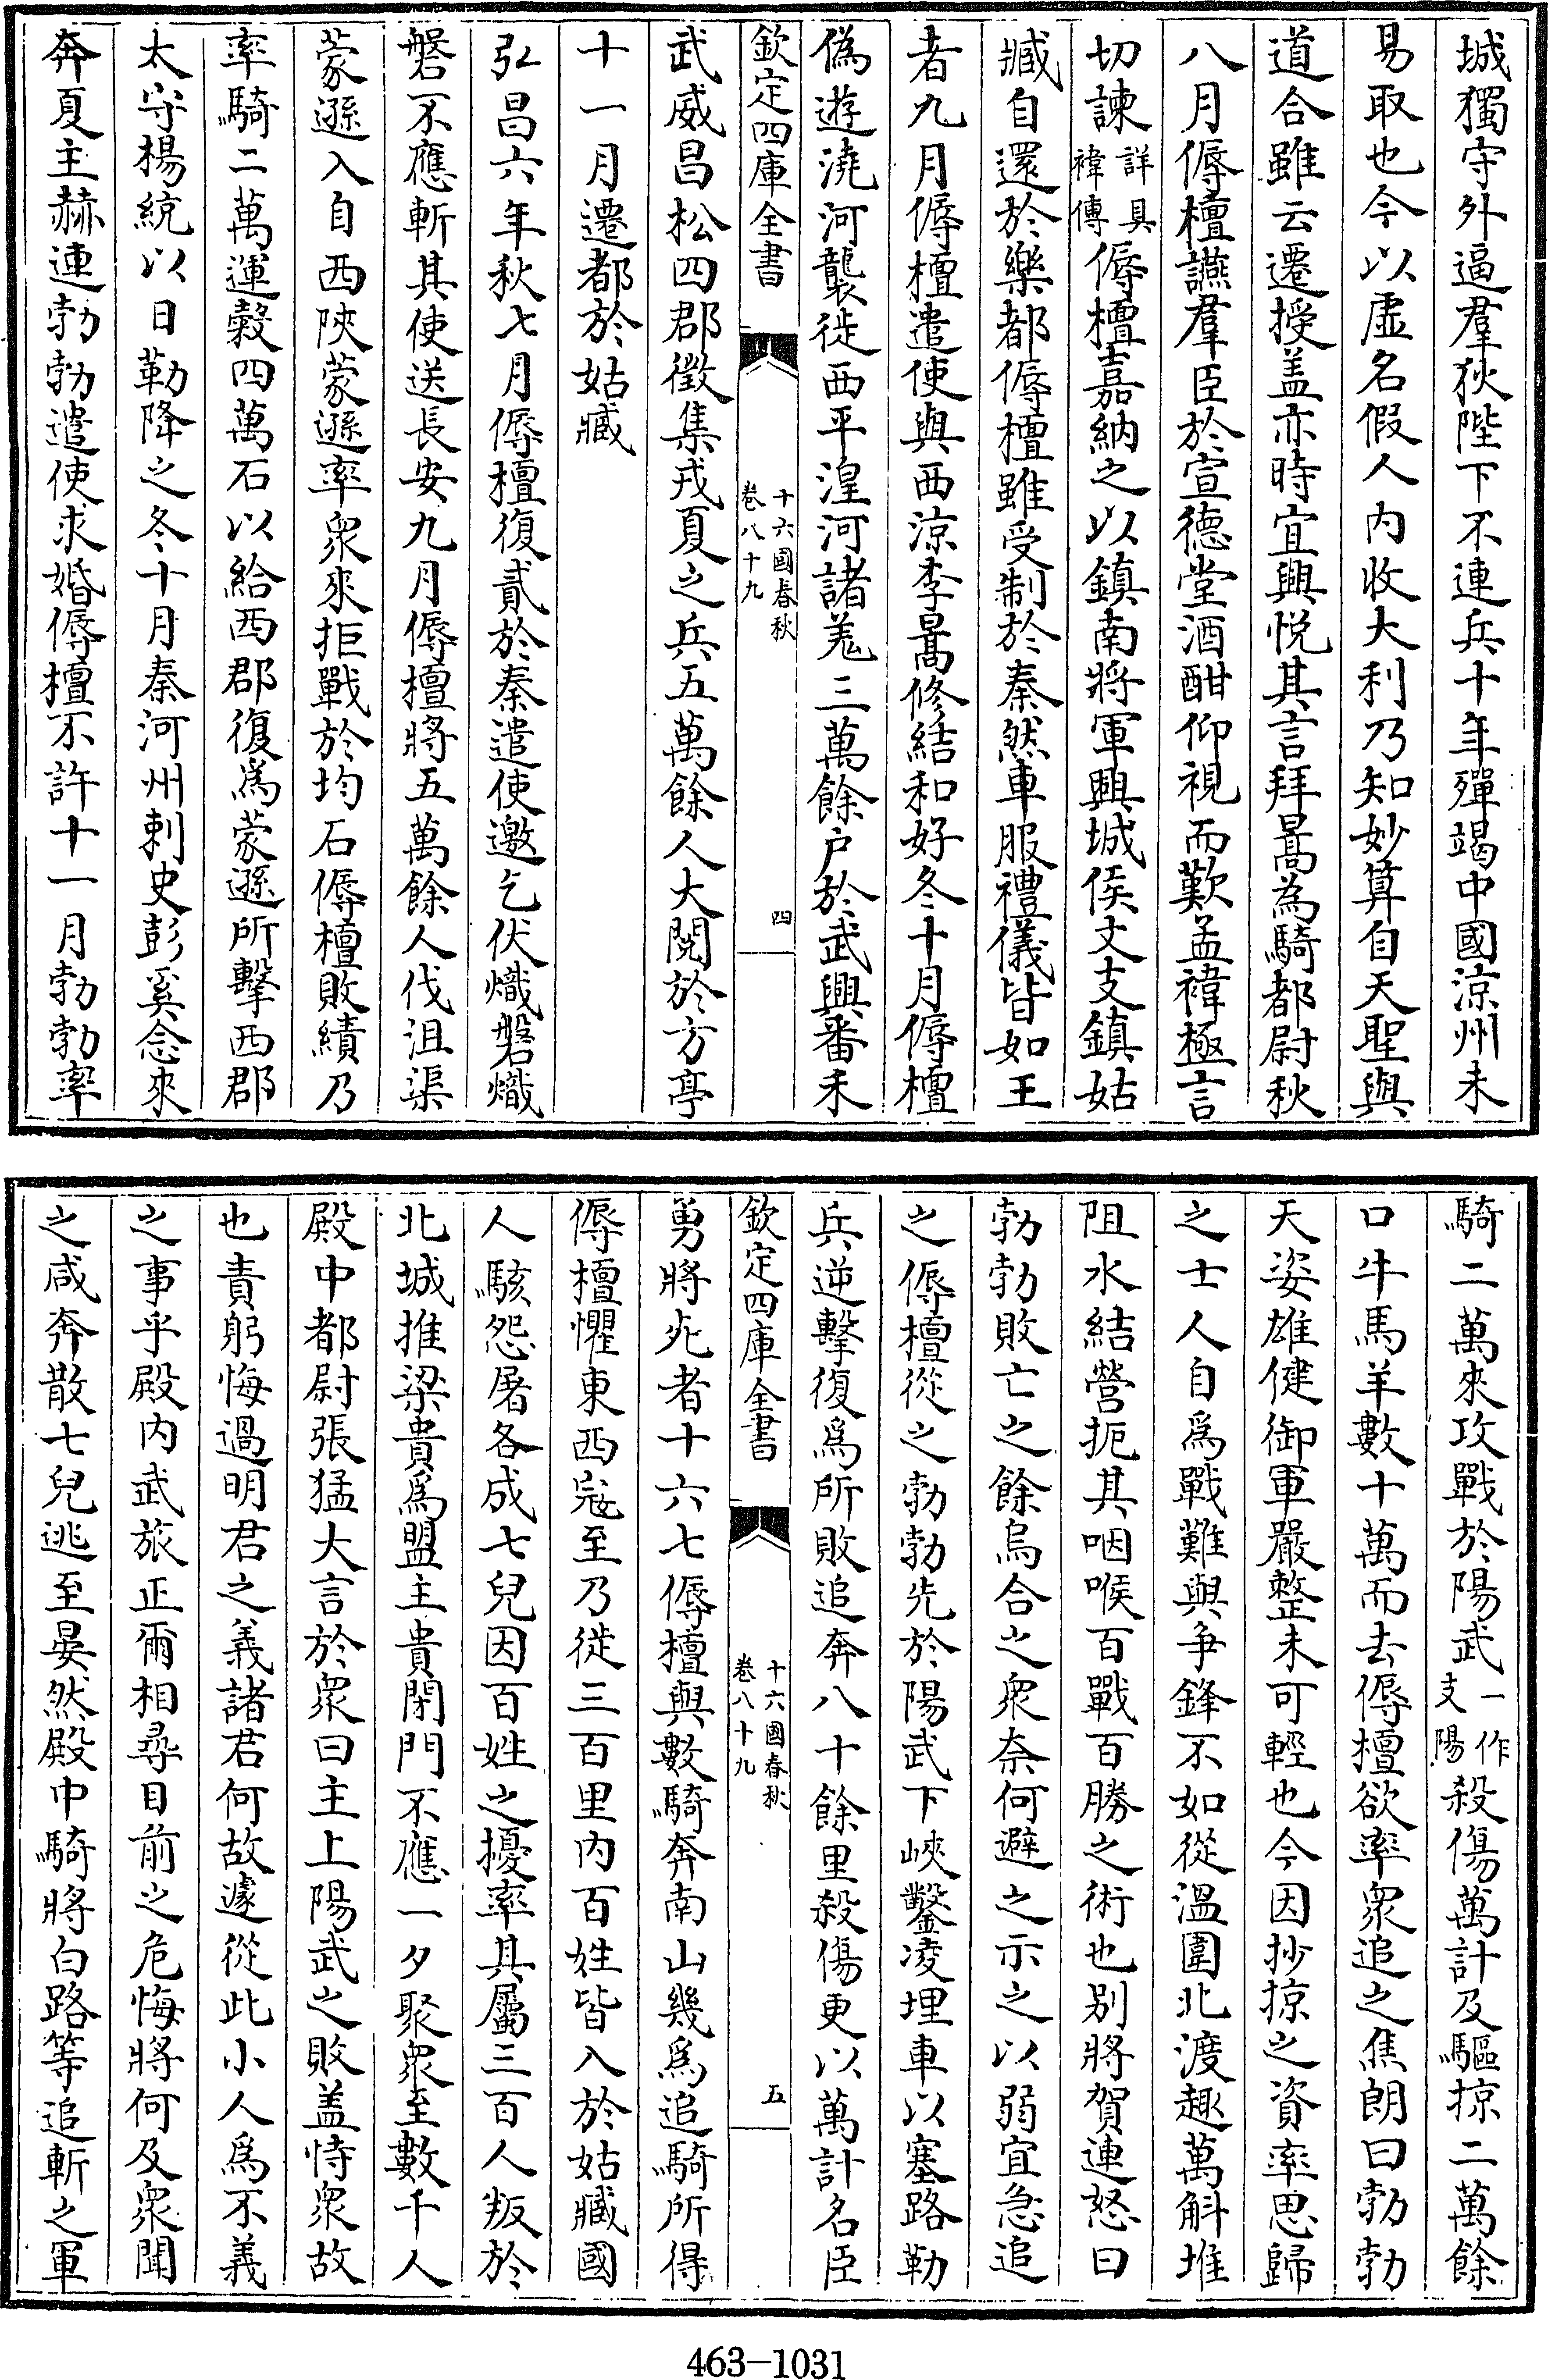 城獨守外逼羣狄陛下不連兵十年殫竭中國涼州未
易取也今以虛名假人内收大利乃知妙算自天聖與
道合雖云遷授盖亦時宜興悦其言拜暠為騎都尉秋
八月傉檀讌羣臣於宣德堂酒酣仰視而歎孟禕極言
切諫詳具禕傳傉檀嘉納之以鎮南將軍興城侯文支鎮姑
臧自還於樂都傉檀雖受制於秦然車服禮儀皆如王
者九月傉檀遣使與西涼李暠修結和好冬十月傉檀
偽遊澆河襲徙西平湟河諸羌三萬餘户於武興番禾
欽定四庫全書 十六國春秋 卷八十九 四
武威昌松四郡徵集戎夏之兵五萬餘人大閱於方亭
十一月遷都於姑臧
弘昌六年秋七月傉檀復貳於秦遣使邀乞伏熾磐熾
磐不應斬其使送長安九月傉檀將五萬餘人伐沮渠
蒙遜入自西陜蒙遜率衆來拒戰於均石傉檀敗績乃
率騎二萬運穀四萬石以給西郡復爲蒙遜所擊西郡
太守楊統以日勒降之冬十月秦河州刺史彭奚念來
奔夏主赫連勃勃遣使求婚傉檀不許十一月勃勃率
騎二萬來攻戰於陽武一作支陽殺傷萬計及驅掠二萬餘
口牛馬羊數十萬而去傉檀欲率衆追之焦朗曰勃勃
天姿雄健御軍嚴整未可輕也今因抄掠之資率思歸
之士人自爲戰難與争鋒不如從溫圍北渡趣萬斛堆
阻水結營扼其咽喉百戰百勝之術也别將賀連怒曰
勃勃敗亡之餘烏合之衆奈何避之示之以弱宜急追
之傉檀從之勃勃先於陽武下峽鑿凌埋車以塞路勒
兵逆擊復爲所敗追奔八十餘里殺傷更以萬計名臣
欽定四庫全書 十六國春秋 卷八十九 五
勇將死者十六七傉檀與數騎奔南山幾爲追騎所得
傉檀懼東西寇至乃徙三百里内百姓皆入於姑臧國
人駭怨屠各成七兒因百姓之擾率其屬三百人叛於
北城推梁貴爲盟主貴閉門不應一夕聚衆至數千人
殿中都尉張猛大言於衆曰主上陽武之敗盖恃衆故
也責躬悔過明君之義諸君何故遽從此小人爲不義
之事乎殿内武旅正爾相尋目前之危悔將何及衆聞
之咸奔散七兒逃至晏然殿中騎將白路等追斬之軍
463-1031